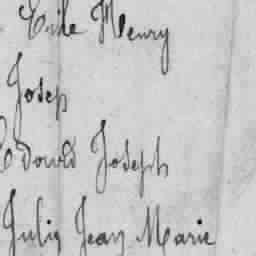 Emile Henry
Joseph
Edouard Joseph
Jules Jean Marie